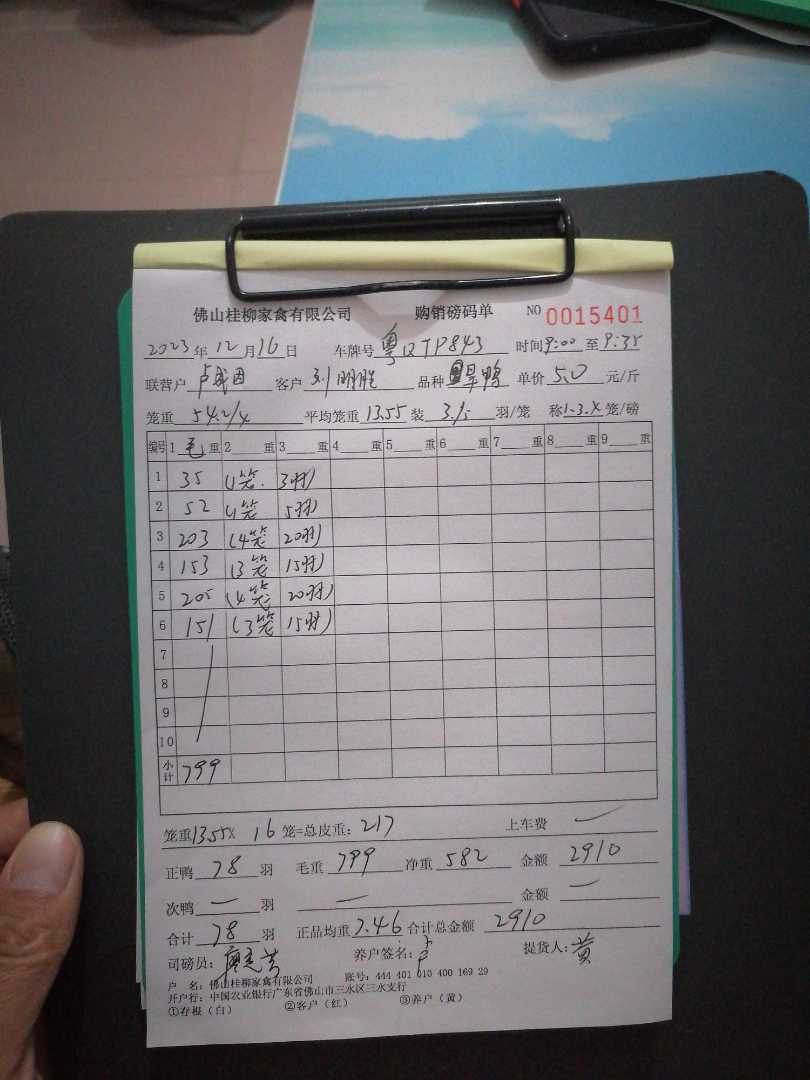 佛山桂柳家禽有限公司 购销磅码单 NO 0015401
2023年12月16日 车牌号粤QTP843 时间9:00至9:35
联营户 客户 刘明胜 品种 旱鸭 单价5.0元/斤
笼重 54.2/4 平均笼重13.55装 3.5 羽/笼 称1-3.4笼/磅
编号 1毛重 2 重 3 重 4 重 5 重 6 重 7 重 8 重 9 重
1 35 (1笼. 3羽)
2 52 (1笼 5羽)
3 203 (4笼 20羽)
4 153 (3笼 15羽)
5 205 (4笼 20羽)
6 151 (3笼 15羽)
7
8
9
10
小计 799
笼重13.55× 16 笼=总皮重：217 上车费 —
正鸭 78 羽 毛重 799 净重 582 金额 2910
次鸭 — 羽 — 金额 —
合计 78 羽 正品均重7.46 合计总金额 2910
司磅员： 养户签名： 提货人：黄
户 名：佛山桂柳家禽有限公司 账号：444 401 010 400 169 29
开户行：中国农业银行广东省佛山市三水区三水支行
①存根（白） ②客户（红） ③养户（黄）